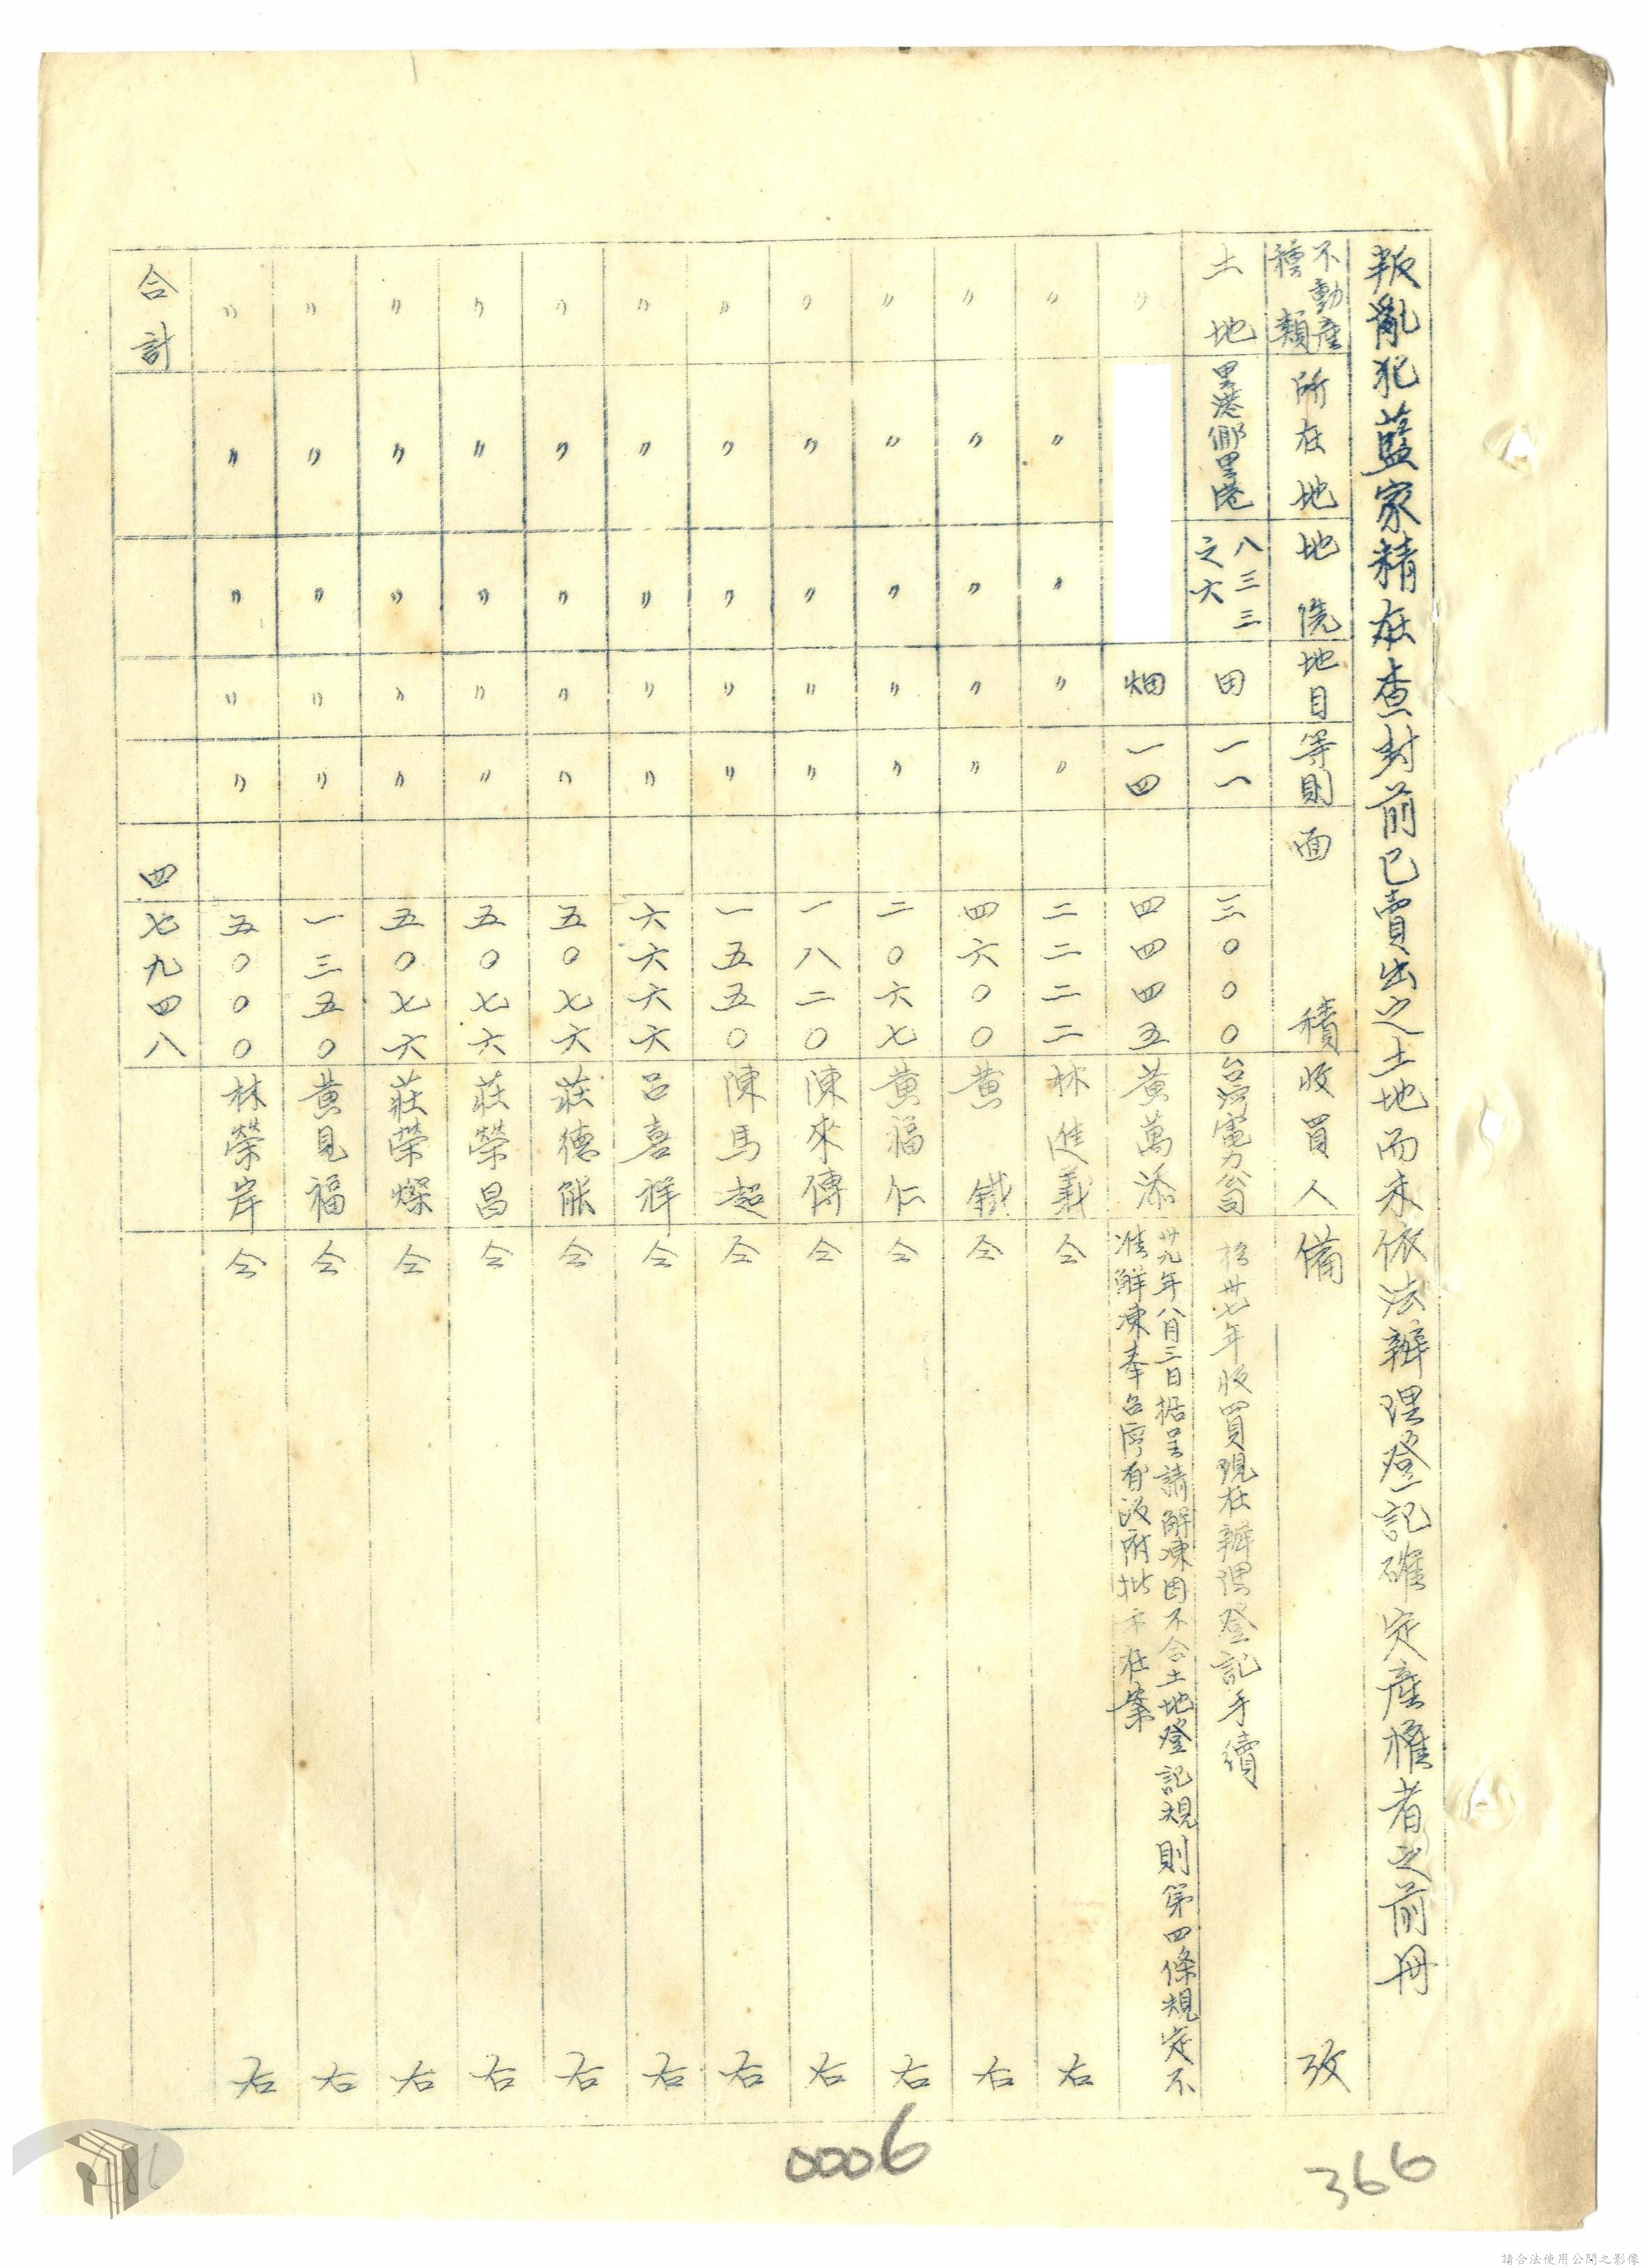 叛亂犯藍家精在查封前已賣出之土地而未依法辦理登記確定產權者之前冊
不動產種類 所在地 地院 地目 等則 面積 收買人 備攷
土地 里港鄉里港 八三三之六 田 一一 三〇〇〇 台灣電力公司 於卅七年收買現在辦理登記手續
〃 畑 一四 四四四五 黃萬添 卅九年八月三日据呈請解凍因不合土地登記規則第四條規定不准解凍奉台灣省政府批示在案
〃 〃 〃 〃 〃 二二二二 林進義 仝右
〃 〃 〃 〃 〃 四六〇〇 黃鐵 仝右
〃 〃 〃 〃 〃 二〇六七 黃福仁 仝右
〃 〃 〃 〃 〃 一八二〇 陳來傳 仝右
〃 〃 〃 〃 〃 一五五〇 陳馬超 仝右
〃 〃 〃 〃 〃 六六六六 呂喜祥 仝右
〃 〃 〃 〃 〃 五〇七六 莊德能 仝右
〃 〃 〃 〃 〃 五〇七六 莊榮昌 仝右
〃 〃 〃 〃 〃 五〇七六 莊荣燦 仝右
〃 〃 〃 〃 〃 一三五〇 黃見福 仝右
〃 〃 〃 〃 〃 五〇〇〇 林榮岸 仝右
合計 四七九四八
0006
366
請合法使用公開之影像